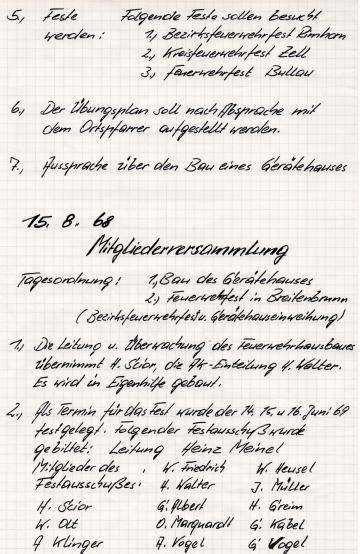 5., Feste Folgende Feste sollen besucht
werden: 1., Bezirksfeuerwehrfest Rimhorn
2., Kreisfeuerwehrfest Zell
3., Feuerwehrfest Bullau
6., Der Übungsplan soll nach Absprache mit
dem Ortspfarrer aufgestellt werden.
7., Aussprache über den Bau eines Gerätehauses
15. 8. 68
Mitgliederversammlung
Tagesordnung: 1., Bau des Gerätehauses
2., Feuerwehrfest in Breitenbrunn
(Bezirksfeuerwehrfest u. Gerätehauseinweihung)
1., Die Leitung u. Überwachung des Feuerwehrhausbaues
übernimmt H. Scior, die AK-Einteilung H. Walter.
Es wird in Eigenhilfe gebaut.
2., Als Termin für das Fest wurde der 14. 15. u 16. Juni 69
festgelegt. Folgender Festausschuß wurde
gebildet: Leitung Heinz Meinel
Mitglieder des W. Friedrich W. Heusel
Festausschußes: H. Walter J. Müller
H. Scior G. Albert H. Greim
W. Olt O. Marquardt G. Kabel
A Klinger A. Vogel G. Vogel